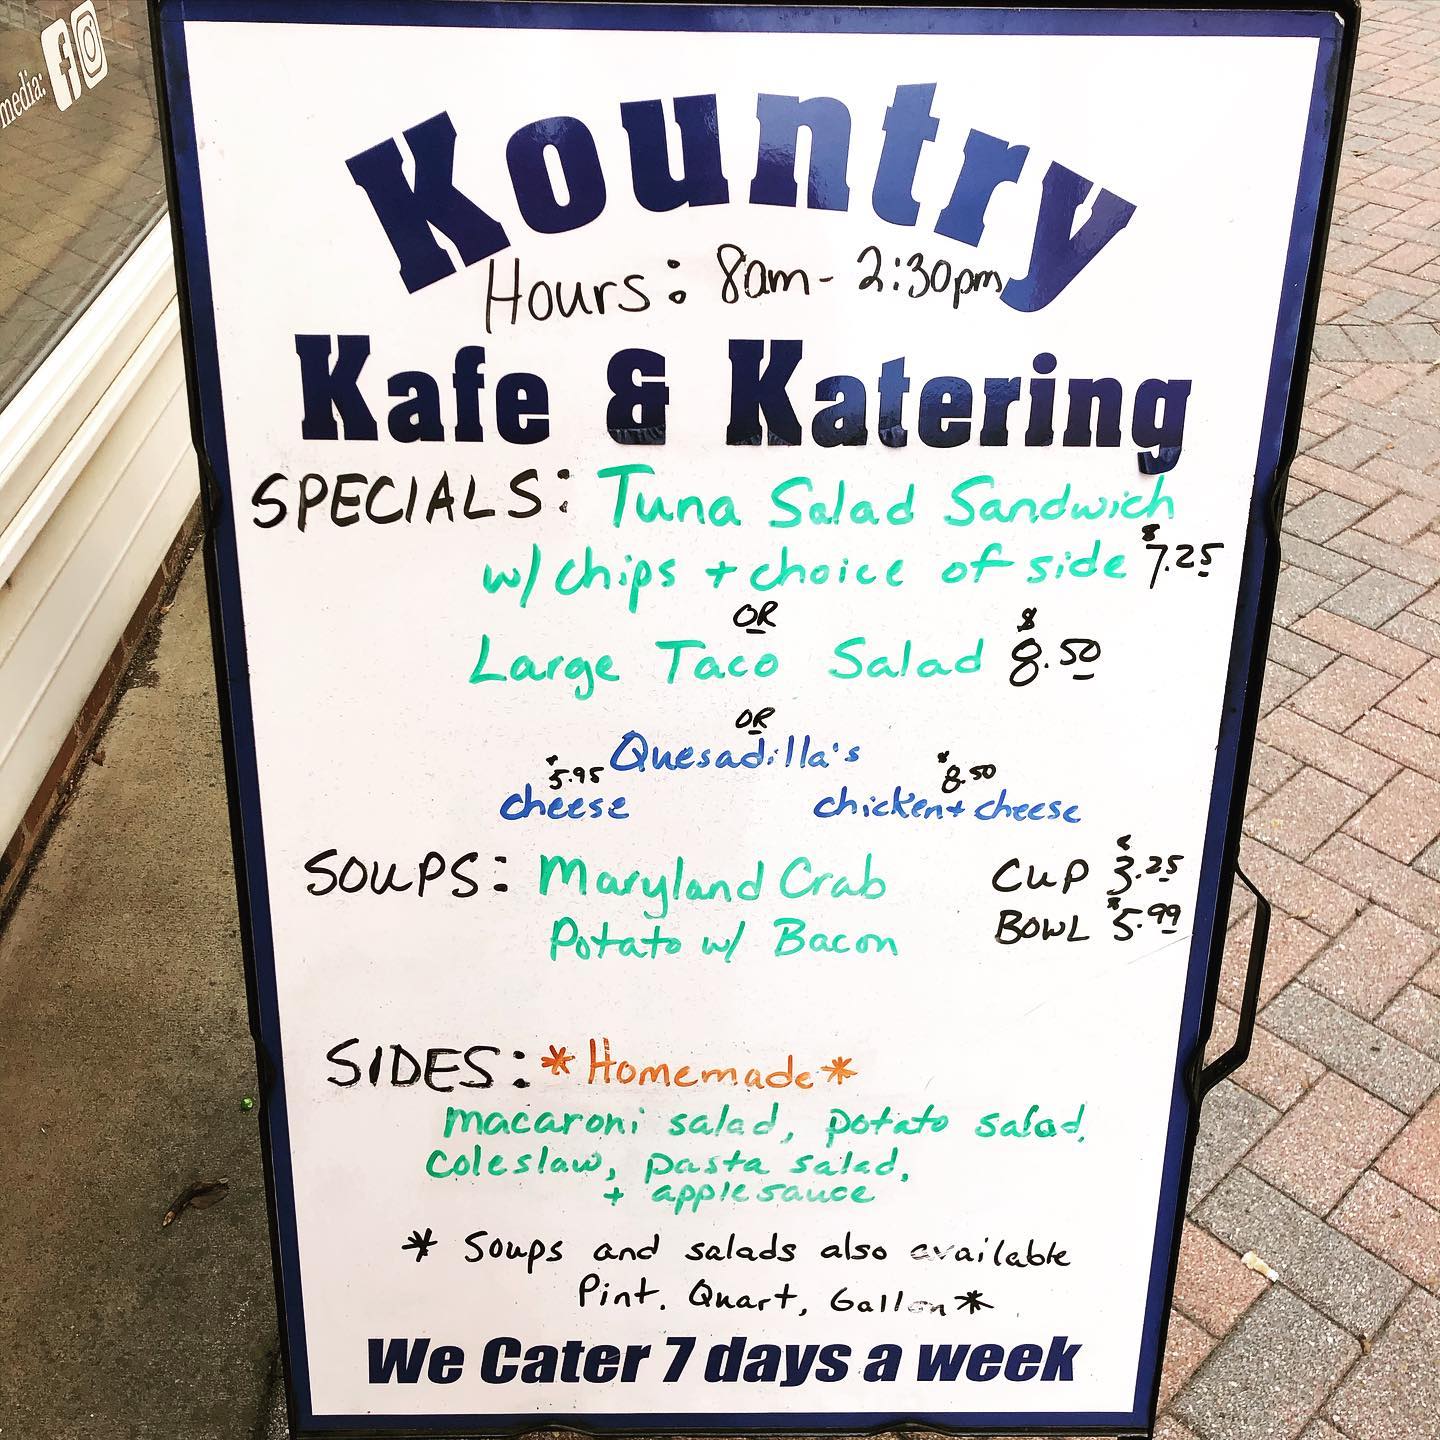 media:
Kountry
Hours: 8am - 2:30pm
Kafe & Katering
SPECIALS: Tuna Salad Sandwich
w/ chips + choice of side $7.25
OR
Large Taco Salad $8.50
OR
Quesadilla's
$5.95 $8.50
cheese chicken + cheese
SOUPS: Maryland Crab CUP $3.25
Potato w/ Bacon BOWL $5.99
SIDES: *Homemade*
macaroni salad, potato salad,
coleslaw, pasta salad,
+ applesauce
* Soups and salads also available
Pint, Quart, Gallon *
We Cater 7 days a week